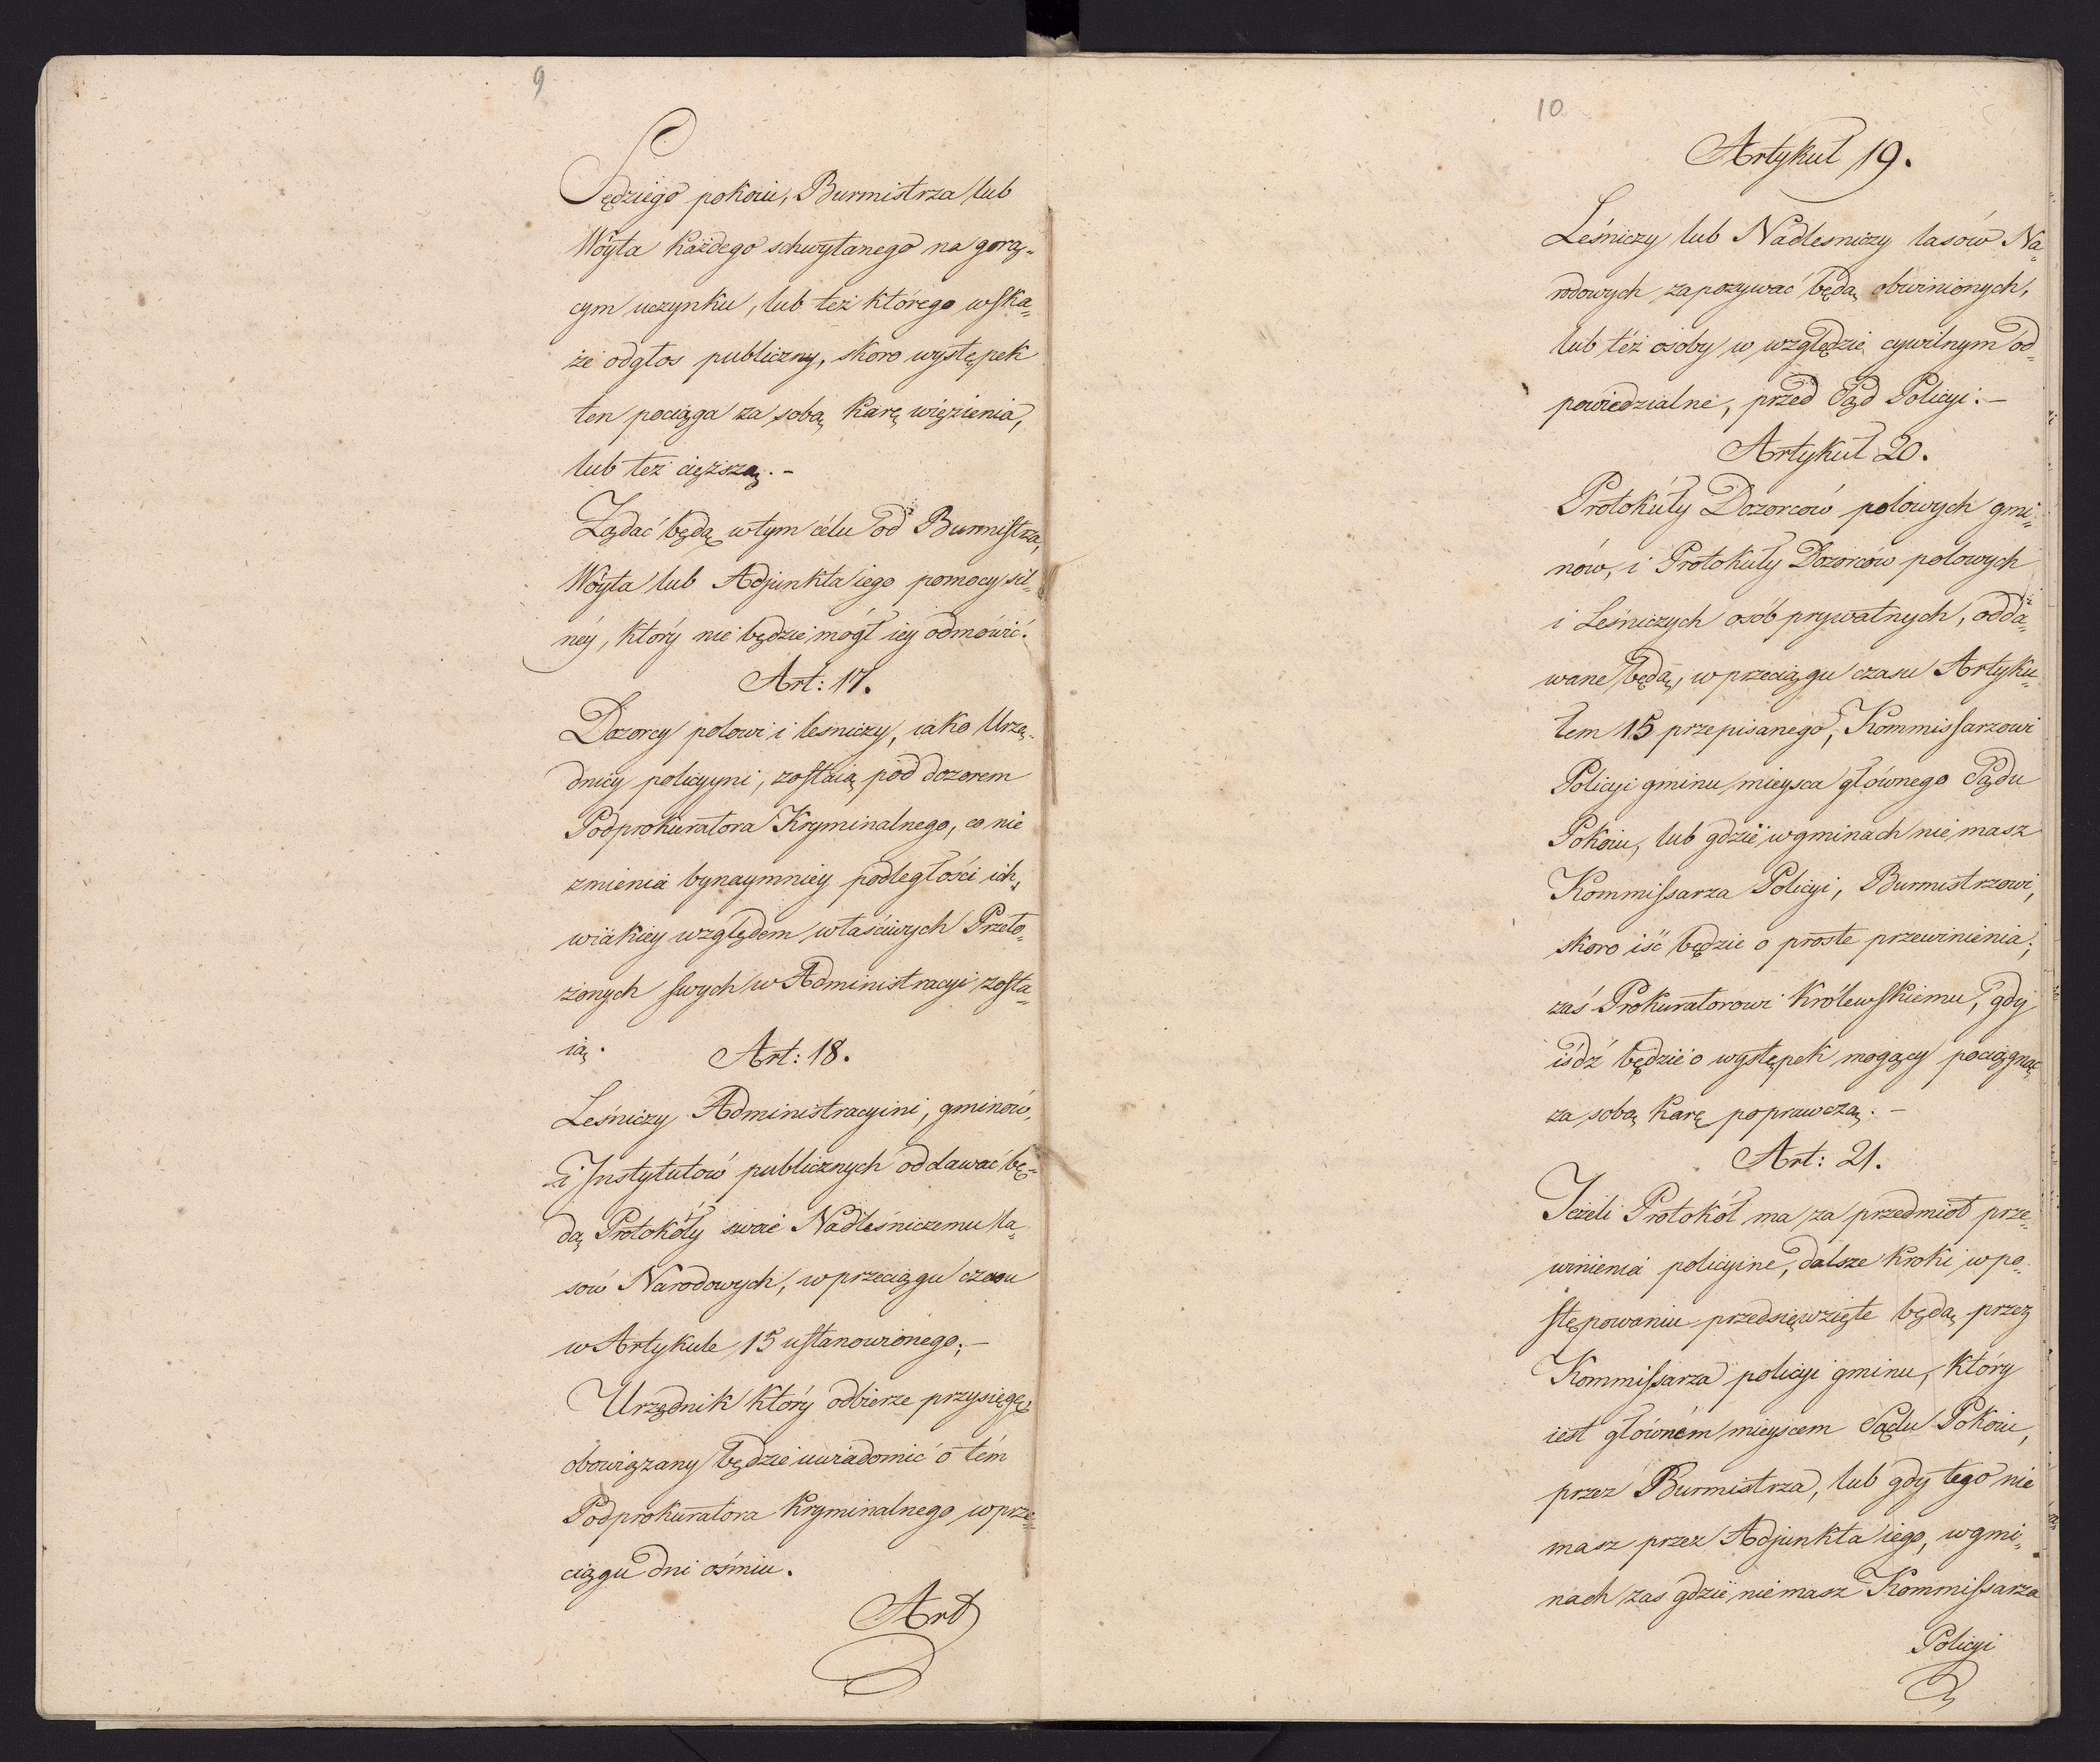 9
Sędziego pokoiu, Burmistrza lub
Woyta każdego schwytanego na gorą-
cym uczynku, lub też którego wska-
że odgłos publiczny, skoro występek
ten pociąga za sobą karę więzienia,
lub też cięższą.-
Żądać będą w tym célu od Burmistrza,
Woyta lub Adjunkta iego pomocy sil-
néy, który nie będzie mógł iey odmówić.
Art: 17.
Dozorcy polowi i leśniczy, iako Urzę-
dnicy policyyni, zostaią pod dozorem
Podprokuratora Kryminalnego, co nie
zmienia bynaymniey podległości ich,
wiakiey względem właściwych Przeło-
żonych swych w Administracyi zosta-
ią.
Art: 18.
Leśniczy Administracyini, gminów,
i Instytutów publicznych oddawać bę-
dą Protokóły swoie Nadleśniczemu la-
sów Narodowych, w przeciągu czasu
w Artykule 15 ustanowionego;-
Urzędnik który odbierze przysięgę
obowiązany będzie uwiadomić o tém
Podprokuratora Kryminalnego w prze-
ciągu dni ośmiu.
Art
10
Artykuł 19.
Leśniczy lub Nadlesniczy lasów Na-
rodowych zapozywać będą obwinionych,
lub też osoby w względzie cywilnym od-
powiedzialne, przed Sąd Policyi.-
Artykuł 20.
Protokuły Dozorców polowych gmi-
nów, i Protokuły Dozorców polowych
i Leśniczych osób prywatnych, odda-
wane będą, w przeciągu czasu Artyku-
łem 15 przepisanego, Kommissarzowi
Policyi gminu mieysca głównego Sądu
Pokoiu, lub gdzie w gminach nie masz
Kommissarza Policyi, Burmistrzowi,
skoro iść będzie o proste przewinienia;
zaś Prokuratorowi Królewskiemu, gdy
iśdź będzie o występek mogący pociągnąć
za sobą karę poprawczą.-
Art: 21.
Jeżeli Protokół ma za przedmiot prze-
winienia policyine, dalsze kroki w po-
stępowaniu przedsięwzięte będą przez
Kommissarza policyi gminu, który
iest główném mieyscem Sądu Pokoiu,
przez Burmistrza, lub gdy tego nie
masz przez Adjunkta iego, w gmi-
nach zas gdzie nie masz Kommissarza
Policyi